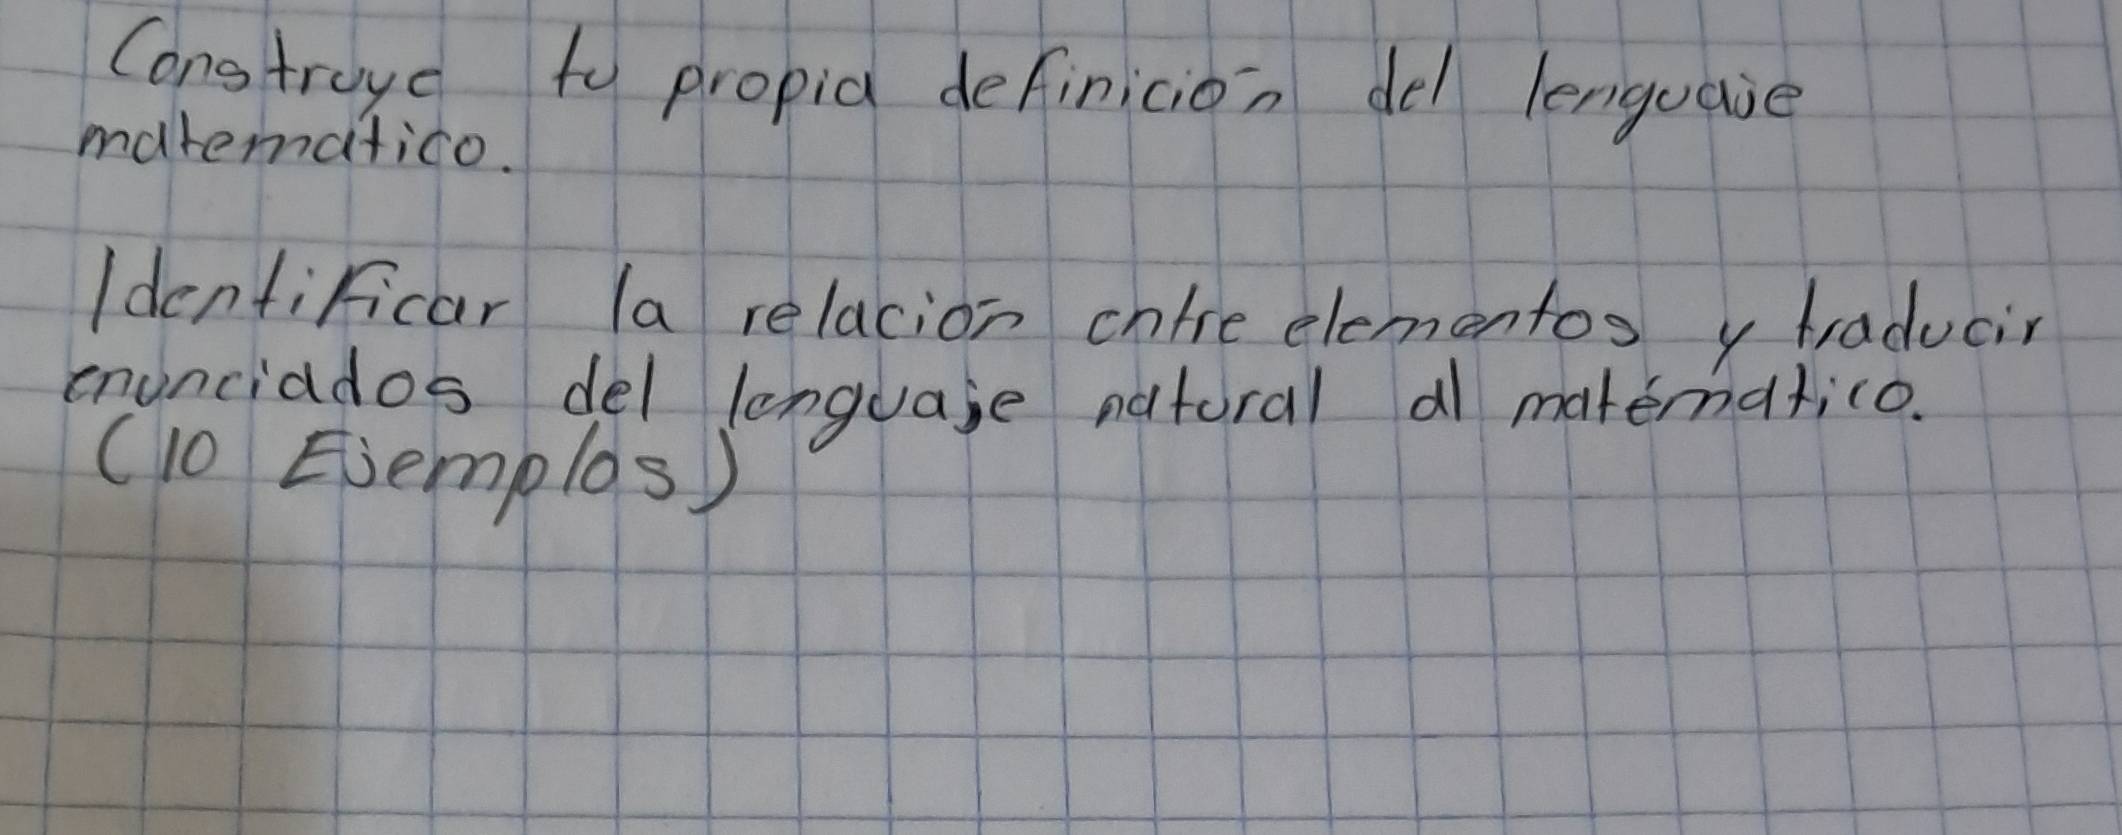 Construye tu propia definición del lenguaje
matematico.
Identificar la relación entre elementos y traducir
enunciados del lenguaje natural al matématico.
(10 Ejemplos)